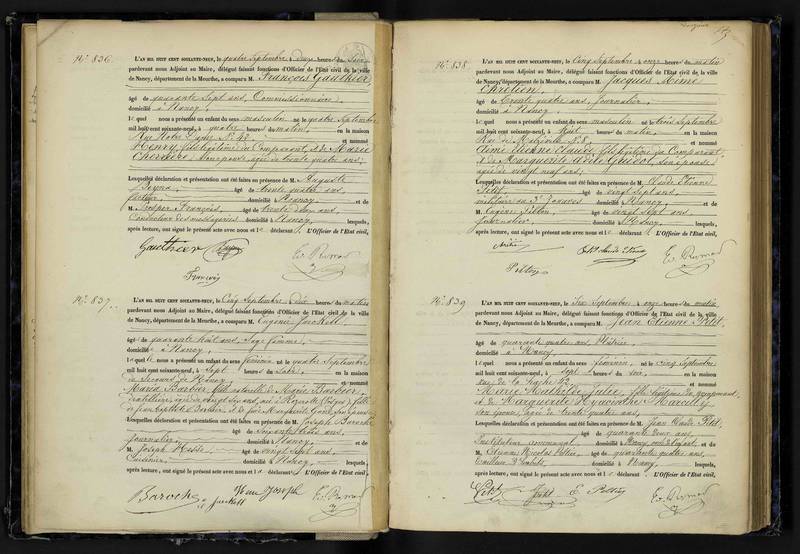 N° 836.
L'AN MIL HUIT CENT SOIXANTE-NEUF, le quatre Septembre à onze heures du
pardevant nous Adjoint au Maire, délégué faisant fonctions d'Officier de l'Etat civil de la ville
de Nancy, département de la Meurthe, a comparu M. François Gauthier,
âgé de quarante Sept ans, Commissionnaire,
domicilié à Nancy,
lequel nous a présenté un enfant du sexe masculin né le quatre Septembre
mil huit cent soixante-neuf, à quatre heures du matin, en la maison
Rue Notre Dame N° 42 et nommé
Henry, fils légitime du Comparant, et de Marie
Son épouse, âgée de trente quatre ans;
Lesquelles déclaration et présentation ont été faites en présence de M. Auguste
âgé de trente quatre ans,
facteur, domicilié à Nancy, et de
M. Prosper François, âgé de trente deux ans,
Conducteur des messageries domicilié à Nancy, lesquels,
après lecture, ont signé le présent acte avec nous et le déclarant. L'Officier de l'Etat civil,
Gauthier
François
N° 837.
L'AN MIL HUIT CENT SOIXANTE-NEUF, le Cinq Septembre à dix heures du matin
pardevant nous Adjoint au Maire, délégué faisant fonctions d'Officier de l'Etat civil de la ville
de Nancy, département de la Meurthe, a comparu M. Eugénie
âgée de quarante huit ans, Sage femme,
domiciliée à Nancy,
laquelle nous a présenté un enfant du sexe féminin né le quatre Septembre
mil huit cent soixante-neuf, à Sept heures du en la maison
de Secours de Nancy et nommé
Maria Barbier, fille naturelle de Marie Barbier,
Lesquelles déclaration et présentation ont été faites en présence de M. Joseph Baroche
âgé de Soixante
journalier, domicilié à Nancy, et de
M. Joseph Hesse, âgé de vingt Sept ans,
Cuisinier, domicilié à Nancy, lesquels,
après lecture, ont signé le présent acte avec nous et la déclarante. L'Officier de l'Etat civil,
Baroche
N° 838.
L'AN MIL HUIT CENT SOIXANTE-NEUF, le Cinq Septembre à onze heures du matin
pardevant nous Adjoint au Maire, délégué faisant fonctions d'Officier de l'Etat civil de la ville
de Nancy, département de la Meurthe, a comparu M. Jacques
Chrétien,
âgé de trente quatre ans, journalier,
domicilié à Nancy,
lequel nous a présenté un enfant du sexe masculin né le trois Septembre
mil huit cent soixante-neuf, à huit heures du matin, en la maison
Rue de N° 8 et nommé
Aimé Etienne Claude, fils légitime du Comparant,
& de Marguerite Adèle son épouse
âgée de vingt neuf ans;
Lesquelles déclaration et présentation ont été faites en présence de M. Claude Etienne
Petit, âgé de vingt Sept ans,
militaire au 3e Zouaves domicilié à Nancy, et de
M. Eugène âgé de vingt Sept ans,
journalier, domicilié à Nancy, lesquels,
après lecture, ont signé le présent acte avec nous et le déclarant. L'Officier de l'Etat civil,
N° 839
L'AN MIL HUIT CENT SOIXANTE-NEUF, le Six Septembre à onze heures du matin
pardevant nous Adjoint au Maire, délégué faisant fonctions d'Officier de l'Etat civil de la ville
de Nancy, département de la Meurthe, a comparu M. Jean Etienne Petit,
âgé de quarante quatre ans,
domicilié à Nancy,
lequel nous a présenté un enfant du sexe féminin né le cinq Septembre
mil huit cent soixante-neuf, à sept heures du soir, en la maison
rue de la hache 42 et nommé
Marie Mathilde Julie, fille légitime du comparant,
et de Marguerite Hyacinthe
son épouse, âgée de trente quatre ans,
Lesquelles déclaration et présentation ont été faites en présence de M. Jean Claude Petit,
âgé de quarante deux ans,
Instituteur communal domicilié à et de
M. Etienne Nicolas âgé de quarante quatre ans,
tailleur d'habits, domicilié à Nancy, lesquels,
après lecture, ont signé le présent acte avec nous et le déclarant. L'Officier de l'Etat civil,
Petit Petit